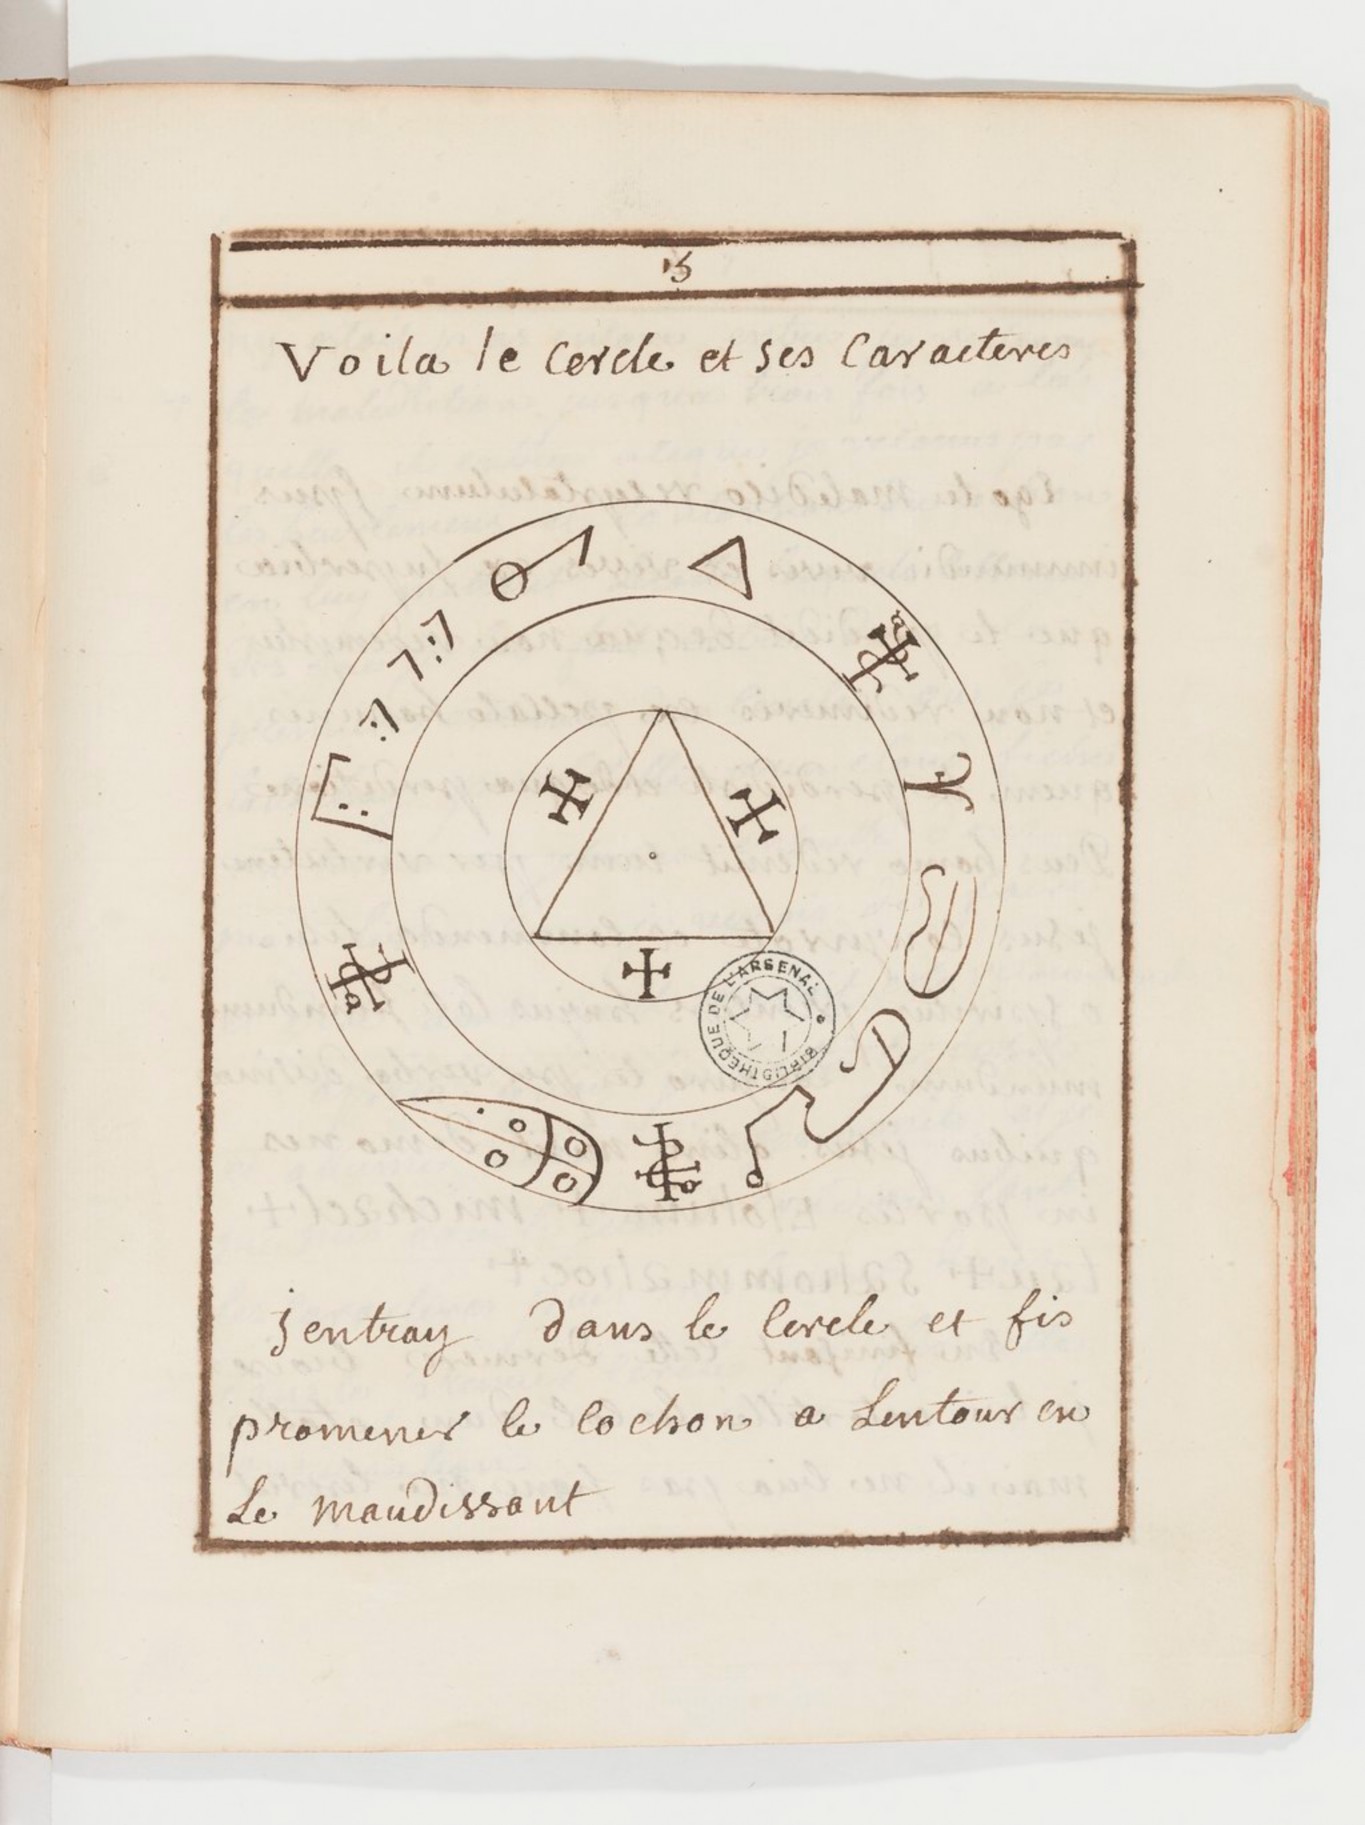 15
Voila le Cercle et ses Caracteres
BIBLIOTHEQUE DE L'ARSENAL
jentray dans le Cercle et fis
promener le cochon a Lentour en
Le maudissant